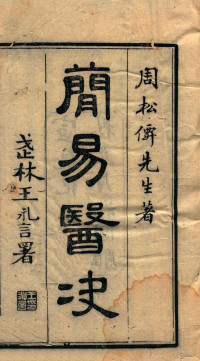 周松僊先生著
簡易醫決
林王礼言署